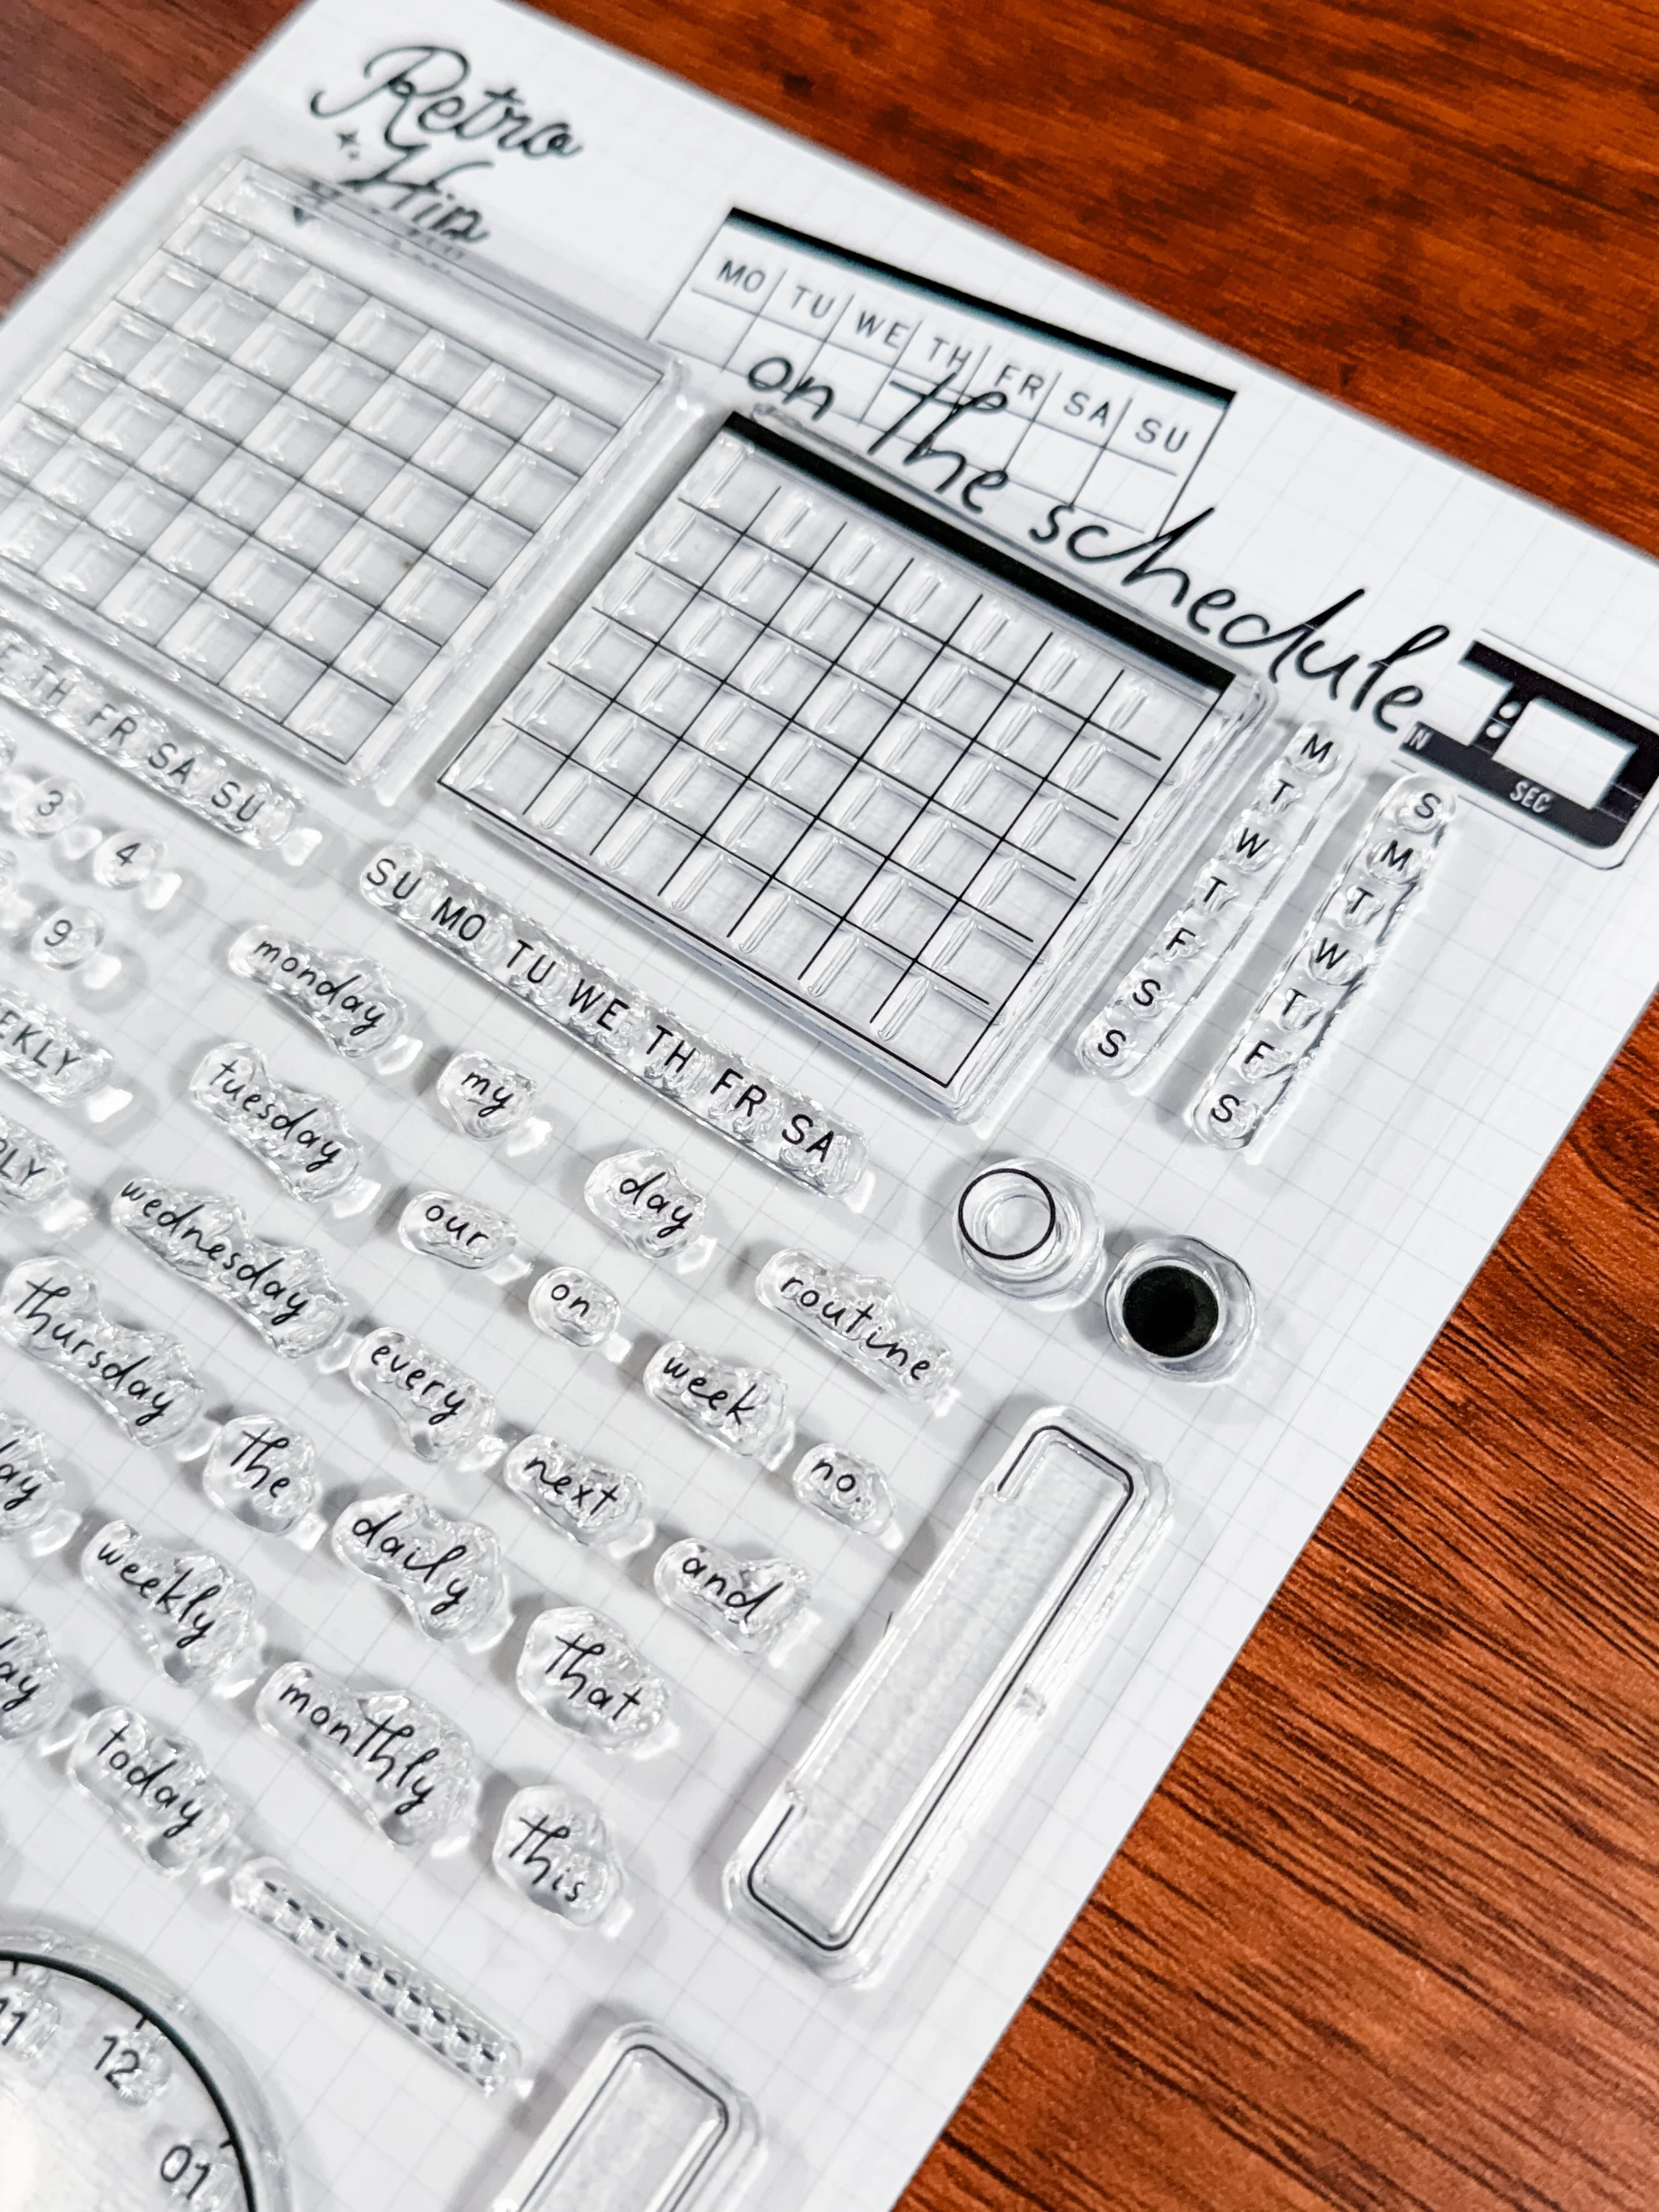 Retro
Hip
MO TU WE TH FR SA SU
on the schedule
SEC
TH FR SA SU
3 4
9
SU MO TU WE TH FR SA
M
T
W
T
F
S
S
S
M
T
W
T
F
S
monday my day routine
tuesday our on week no.
wednesday every next and
thursday the daily that
weekly monthly this
today
11 12 01